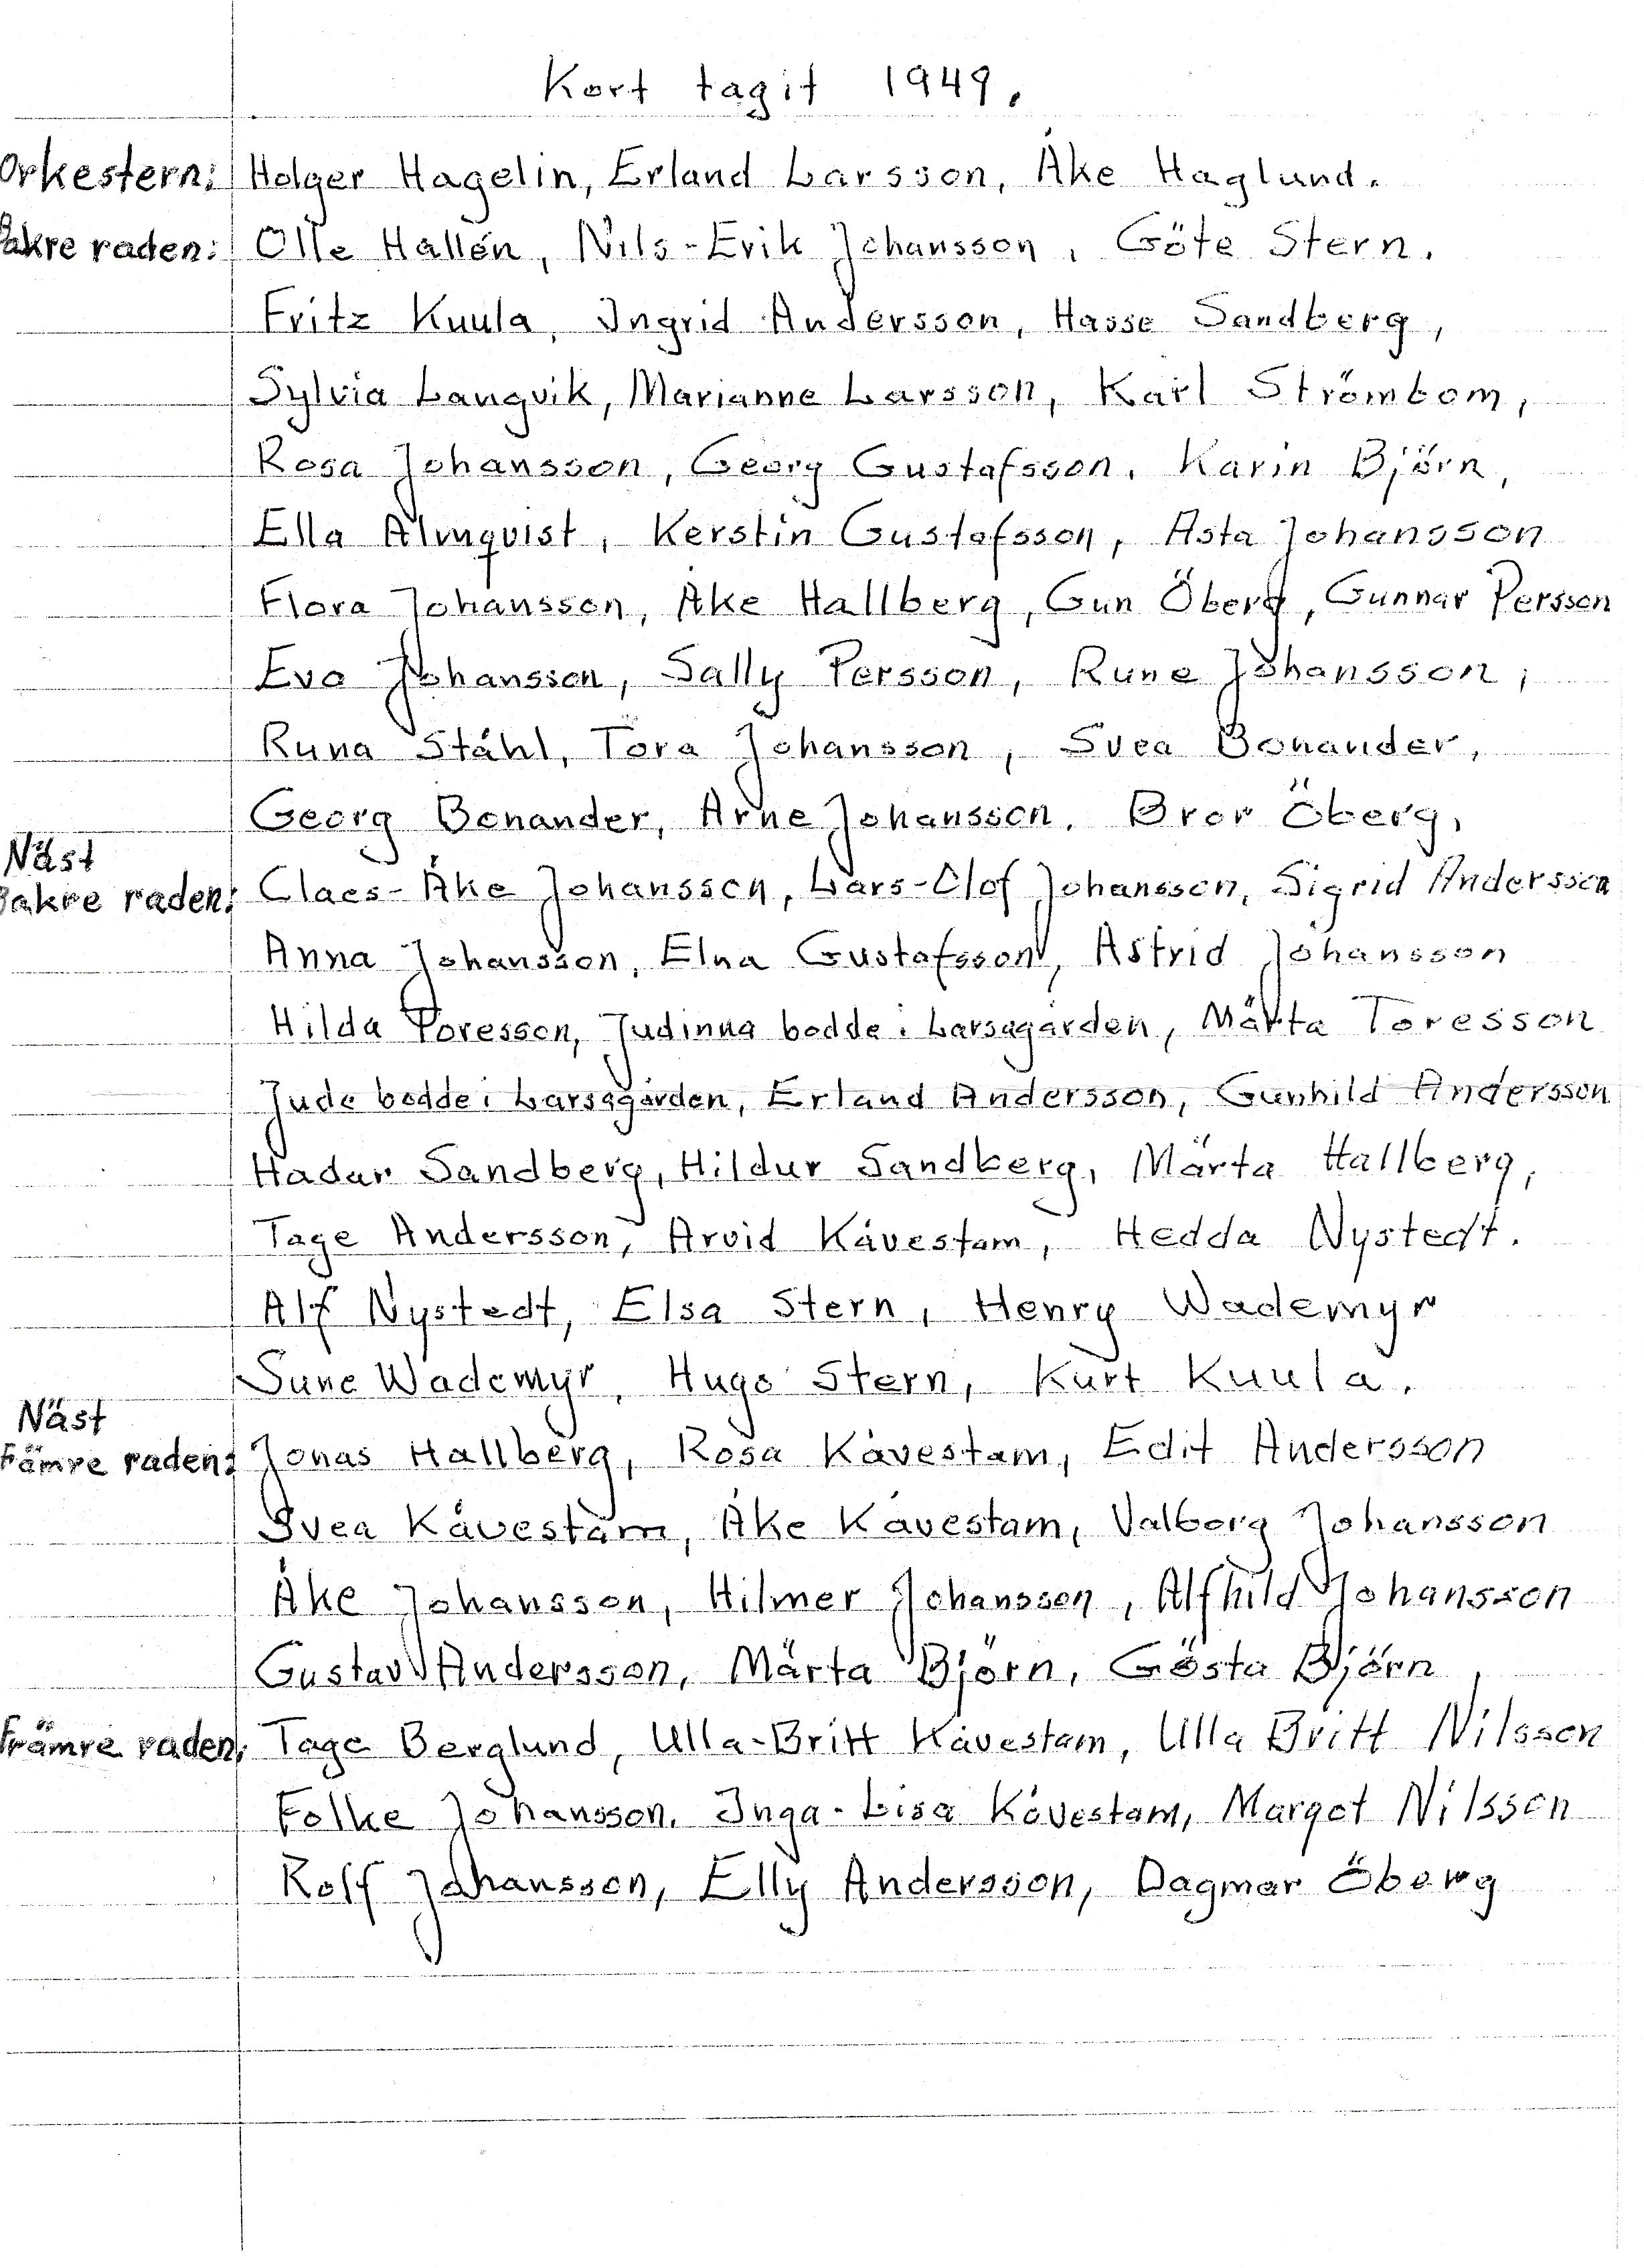 Kort tagit 1949.
Orkestern: Holger Hagelin, Erland Larsson, Åke Haglund.
Bakre raden: Olle Hallén, Nils-Erik Johansson, Göte Stern.
Fritz Kuula, Ingrid Andersson, Hasse Sandberg,
Sylvia Langvik, Marianne Larsson, Karl Strömbom,
Rosa Johansson, Georg Gustafsson, Karin Björn,
Ella Almqvist, Kerstin Gustafsson, Asta Johansson
Flora Johansson, Åke Hallberg, Gun Öberg, Gunnar Persson
Eva Johansson, Sally Persson, Rune Johansson,
Runa Ståhl, Tora Johansson, Svea Bonander,
Georg Bonander, Arne Johansson, Bror Öberg,
Näst
Bakre raden: Claes-Åke Johansson, Lars-Olof Johansson, Sigrid Andersson
Anna Johansson, Elna Gustafsson, Astrid Johansson
Hilda Toresson, Judinna bodde i Larsagården, Märta Toresson
Jude bodde i Larsagården, Erland Andersson, Gunhild Andersson
Hadar Sandberg, Hildur Sandberg, Märta Hallberg,
Tage Andersson, Arvid Kåvestam, Hedda Nystedt.
Alf Nystedt, Elsa Stern, Henry Wademyr
Sune Wademyr, Hugo Stern, Kurt Kuula.
Näst
Fämre raden: Jonas Hallberg, Rosa Kåvestam, Edit Andersson
Svea Kåvestam, Åke Kåvestam, Valborg Johansson
Åke Johansson, Hilmer Johansson, Alfhild Johansson
Gustav Andersson, Märta Björn, Gösta Björn,
Främre raden: Tage Berglund, Ulla-Britt Kåvestam, Ulla Britt Nilsson
Folke Johansson, Inga-Lisa Kåvestam, Margot Nilsson
Rolf Johansson, Elly Andersson, Dagmar Öberg